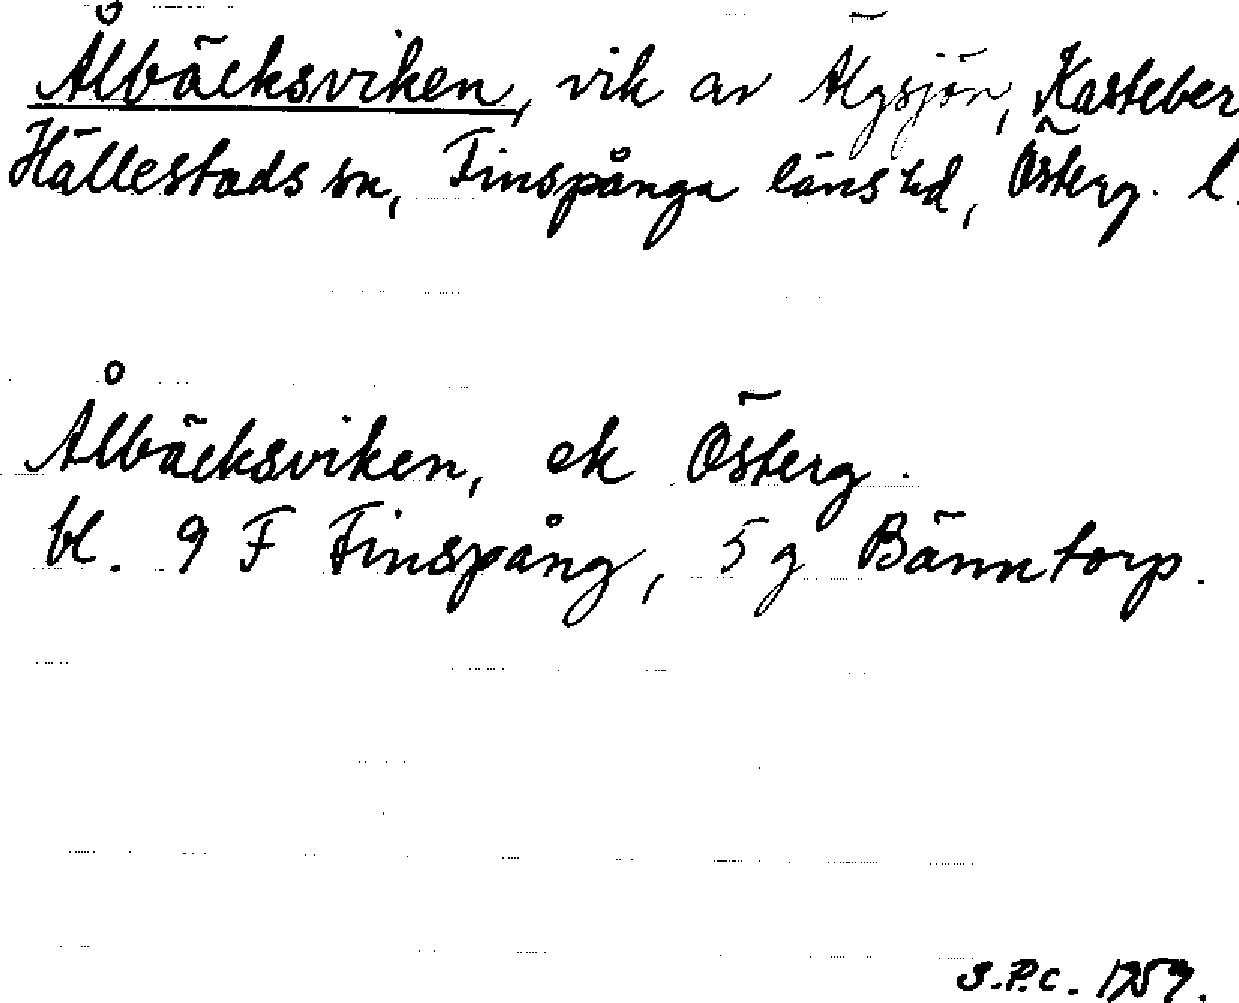 Ålbäcksviken, vik av Älgsjön, Kasteber
Hällestads sn, Finspånga läns hd, Österg. l.
Ålbäcksviken, ek Österg.
bl. 9 F Finspång, 5 g Bänntorp.
S.P.C. 1959.